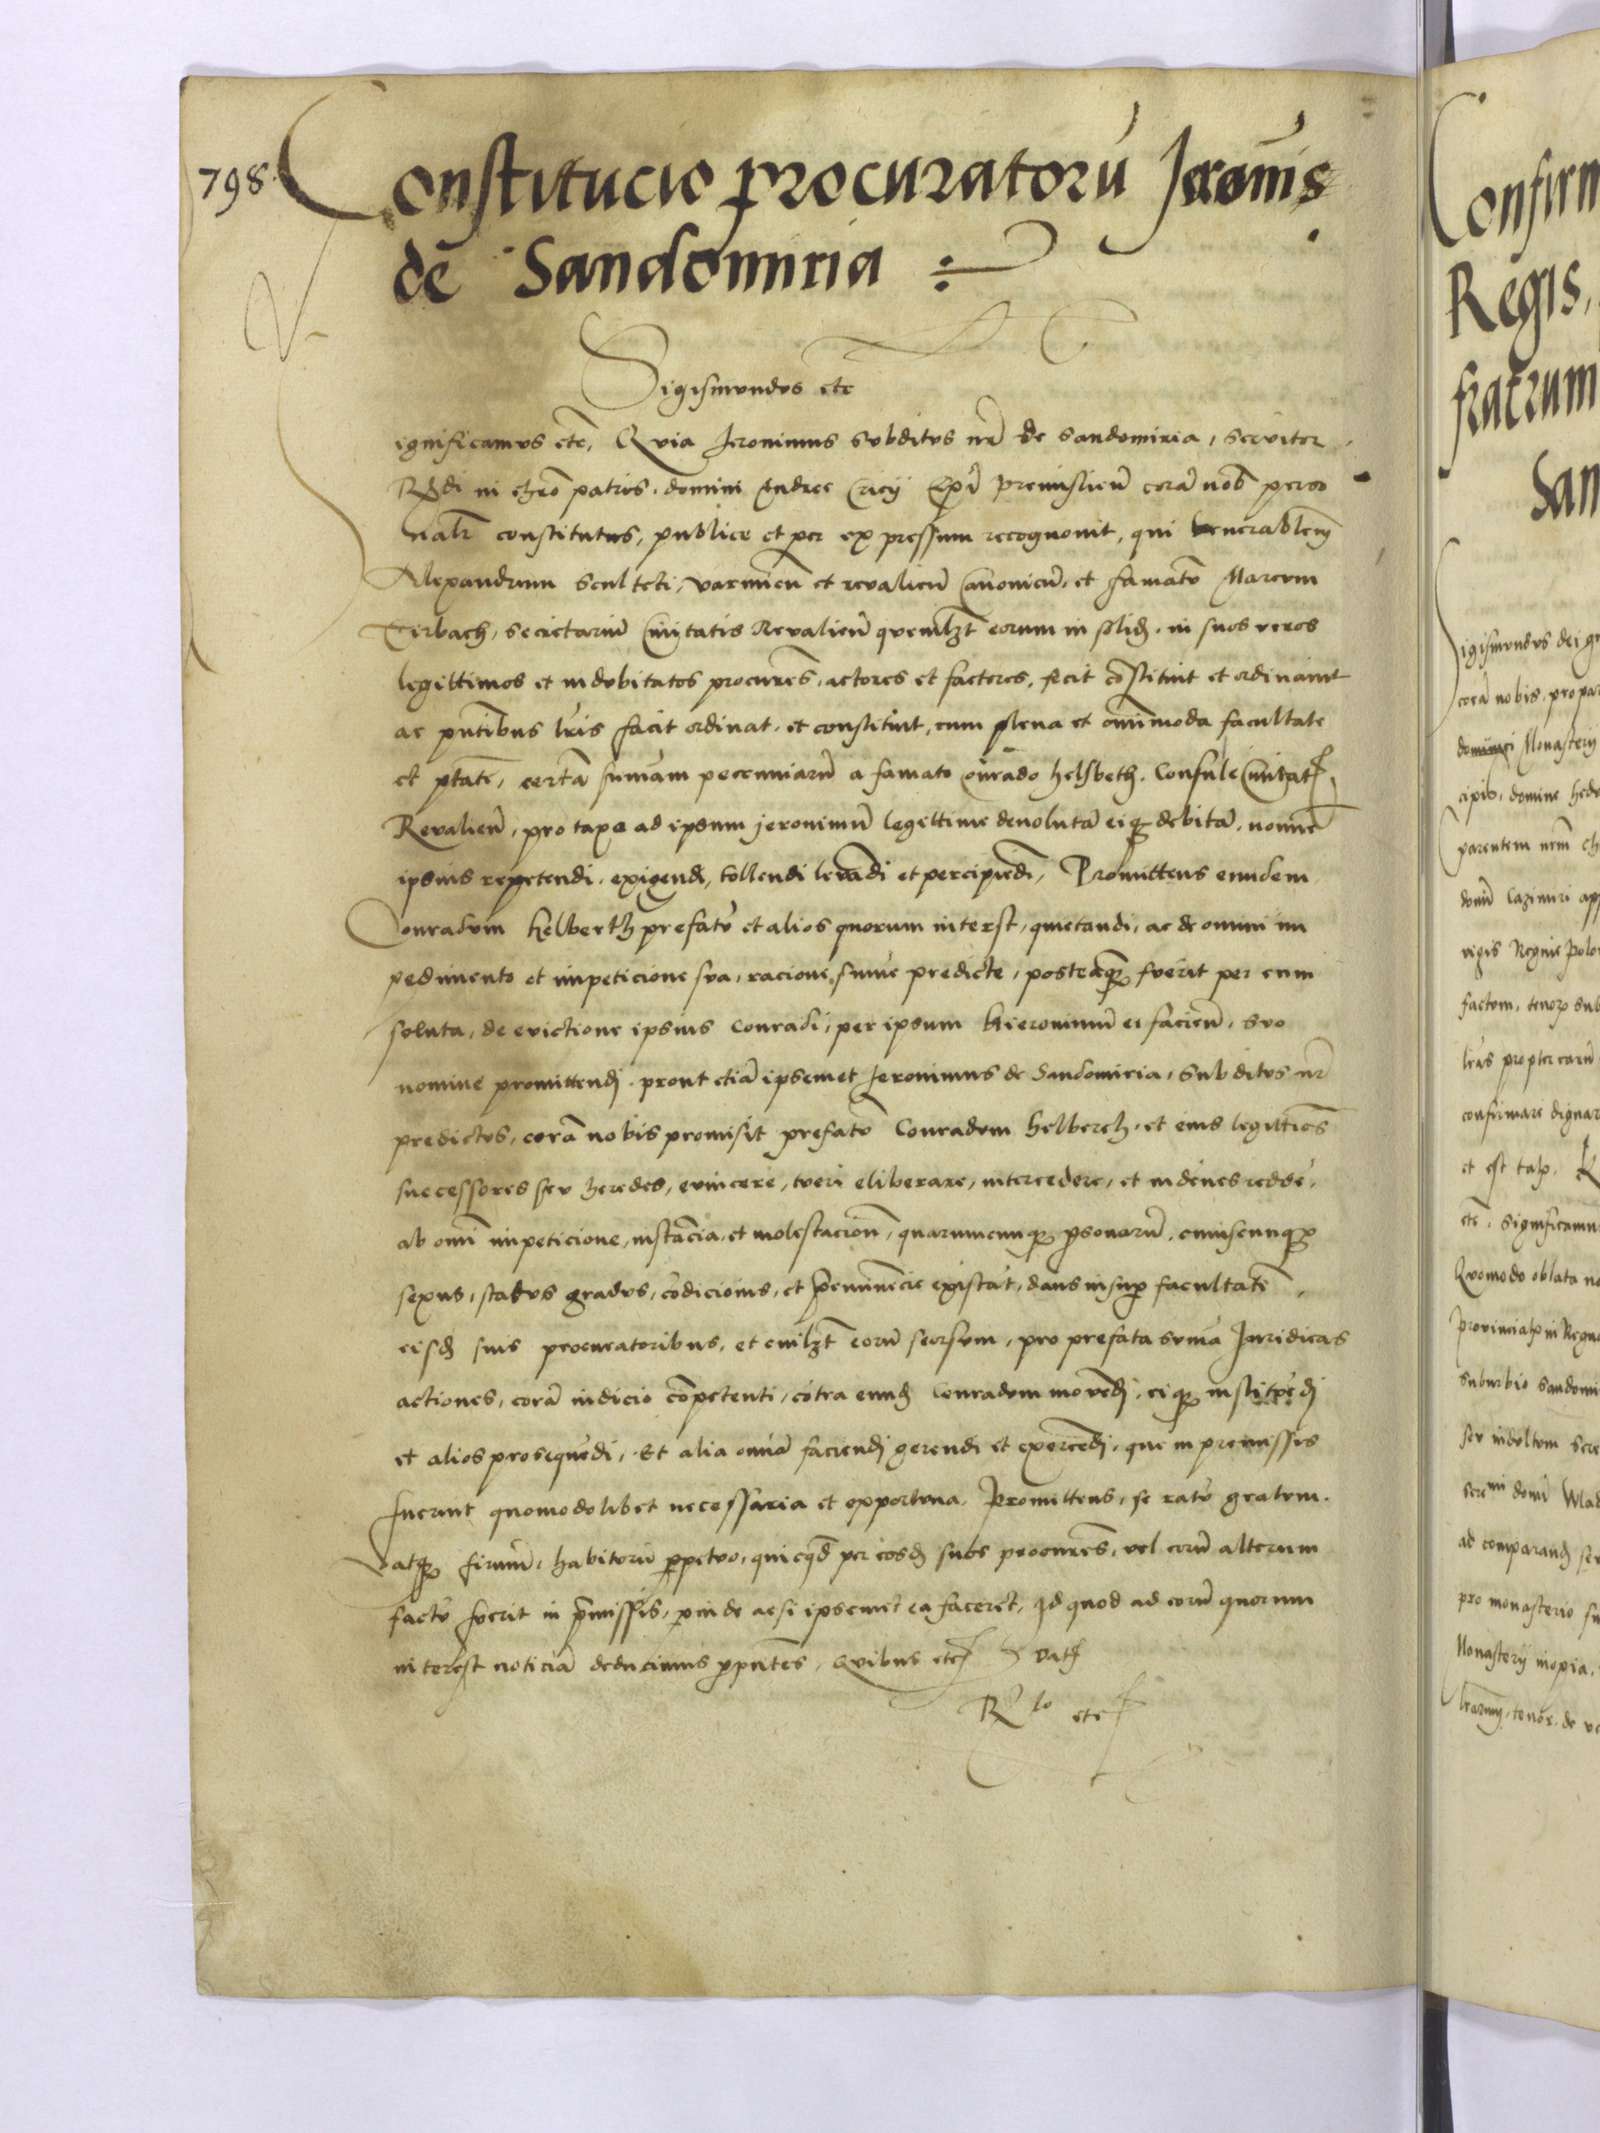 798.
Constitucio procuratorū Jeronīs
de Sandomiria
Sigismundus etc
ignificamus etc, Quia Jeronimus subditus nr̄ de Sandomiria, servitor
Rndi in chro patris domini Andree Cricij Epī Premislien̄ corā nob̄ perso
nalr constitutus, publice et per expressum recognovit, qui venerablem̄
Alexandrum Sculteti, varmien̄ et revalien̄ Canonicū, et famatū Marcum
Tirbach, Secretariū Civitatis Revalien̄ quemlzt eorum in solid, in suos veros
legittimos et indubitatos procurēs, actores et factores, fecit cōstituit et ordinavit
ac pn̄tibus lr̄is facit ordinat et constituit, cum plena et om̄imoda facultate
et ptāte, certā sum̄am pecuniarū a famato Conrado helsbeth, Consule Civitat
Revalien̄, pro taxa ad ipsum jeronimū legittime devolutā eiq debitā, nomīe
ipsius repetendi, exigendi, tollendi levādi et percipiēdi, Promittens eundem
Conradum helberth prefatū et alios quorum interest, quietandi, ac de omni im
pedimento et impeticione sua, racione sum̄e predicte, posteaq fuerit per eum
soluta, de evictione ipsius Conradi, per ipsum Hieronimū ei facien̄, suo
nomine promittendi, prout etiā ipsemet Jeronimus de Sandomiria, subditus nr̄
predictus, corā nobis promisit prefatū Conradum helberch, et eius legittīos
successores seu heredes, evincere, tueri eliberare, intercedere, et indēnes reddē,
ab om̄i impeticione, instācia, et molestacion̄, quarumcunq psonarū, cuiuscunq
sexus, status gradus, cōdicionis, et p̄eminēcie existāt, dans insup facultatē
eisd suis procuratoribus, et cuilzt eorū seorsum, pro prefata sum̄a Juridicas
actiones, corā iudicio cōpetenti, cōtra eund Conradum movēdi, eiq instituēdi
et alios prosequēdi, Et alia omnīa faciendi gerendi et exercēdi, que in premissis
fuerint quomodolibet necessaria et opportuna. Promittens, se ratū gratum
atq firmū, habiturū ppetuo, quicqd per eosd suos procurēs, vel eorū alterum
factū fuerit in p̄missis, pinde acsi ipsemet ea faceret, Id quod ad eorū quorum
interest noticiā deducimus p pn̄tes, Quibus etc Dat
Rlo etc